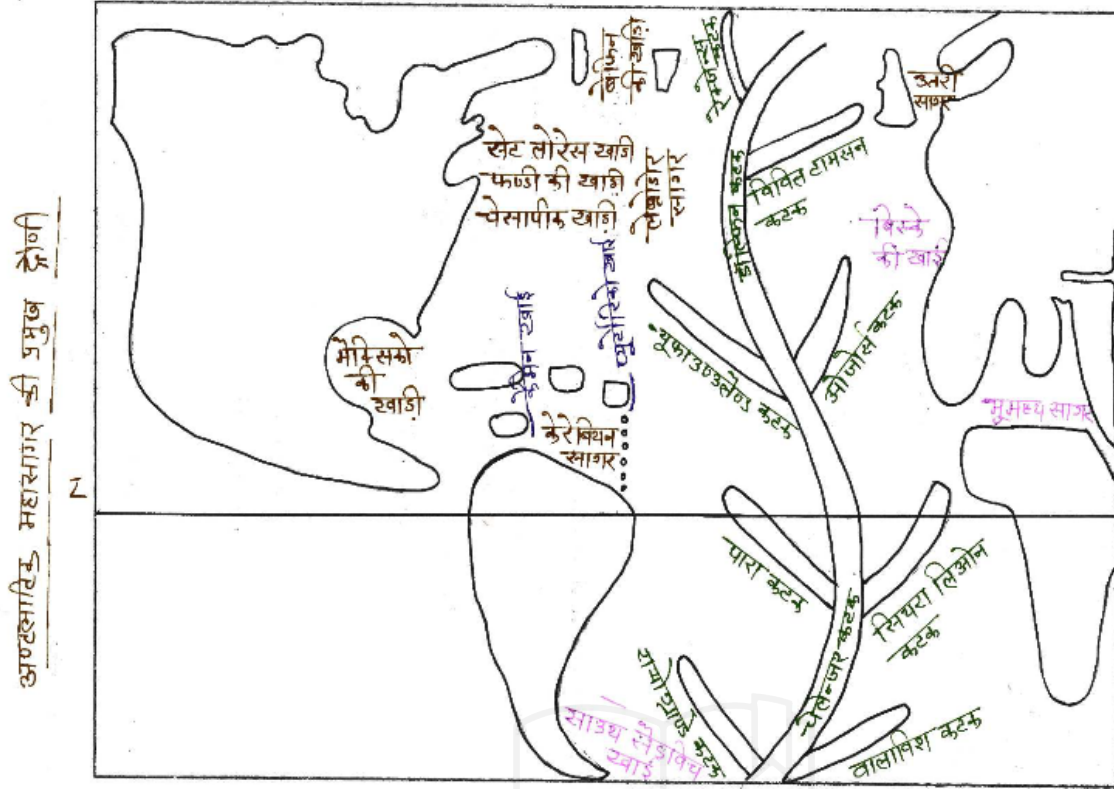 अण्टलाटिक महासागर की प्रमुख द्रोणी
बेफिन
की खाड़ी
रेकेजन्स कटक
उतरी
सागर
सेट लोरेस खाडी
फण्डी की खाडी
चेसापीक खाडी
लेब्राडार
सागर
डाल्फिन कटक
विवित टामसन
कटक
बिस्के
की खाडी
मैक्सिको
की
खाडी
केमन खाई
प्यूर्टोरिको खाई
केरेबियन
सागर
न्यूफाउण्डलैण्ड कटक
अेजोर्स कटक
भूमध्य सागर
पारा कटक
सियरा लिओन
कटक
चेलेन्जर कटक
रायोग्राण्डे कटक
साउथ सेडविच
खाई
वालविश कटक